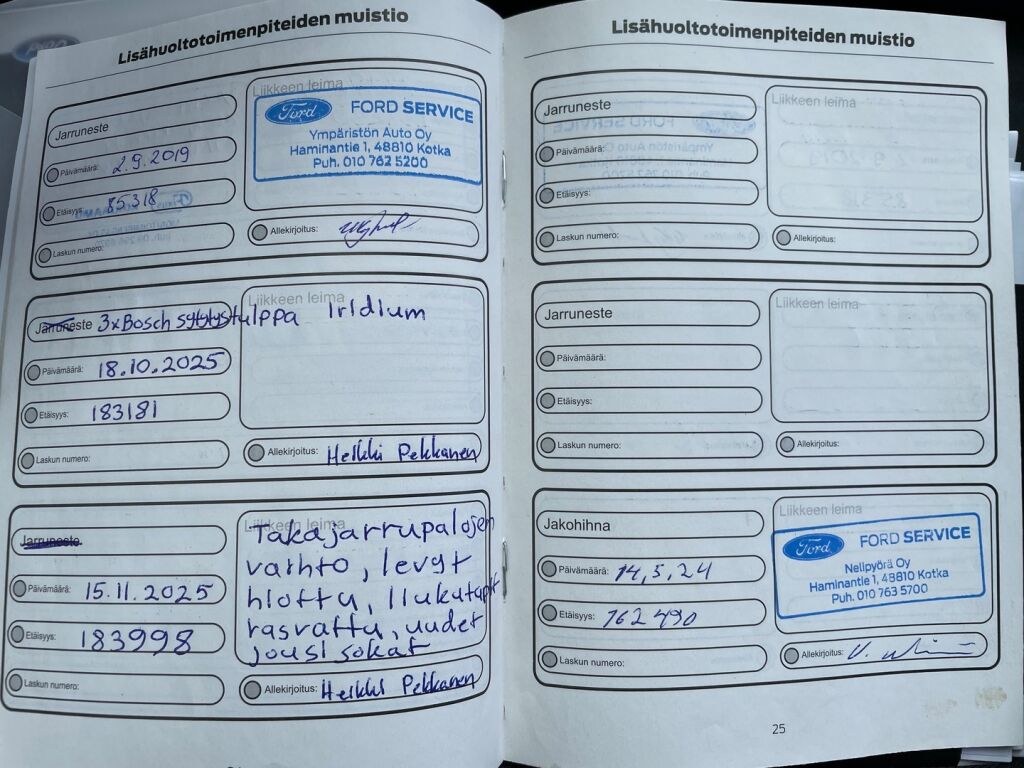 Lisähuoltotoimenpiteiden muistio
Jarruneste
Päivämäärä: 2.9.2019
Etäisyys: 85318
Laskun numero:
Liikkeen leima
Ford FORD SERVICE
Ympäristön Auto Oy
Haminantie 1, 48810 Kotka
Puh. 010 762 5200
Allekirjoitus:
Jarruneste 3xBosch sytytystulppa Iridium
Päivämäärä: 18.10.2025
Etäisyys: 183181
Laskun numero:
Liikkeen leima
Allekirjoitus: Heikki Pekkanen
Jarruneste
Päivämäärä: 15.11.2025
Etäisyys: 183998
Laskun numero:
Liikkeen leima
Takajarrupalojen
vaihto, levyt
hiottu, liukutapit
rasvattu, uudet
jousisokat
Allekirjoitus: Heikki Pekkanen
Lisähuoltotoimenpiteiden muistio
Jarruneste
Päivämäärä:
Etäisyys:
Laskun numero:
Liikkeen leima
Allekirjoitus:
Jarruneste
Päivämäärä:
Etäisyys:
Laskun numero:
Liikkeen leima
Allekirjoitus:
Jakohihna
Päivämäärä: 14,5,24
Etäisyys: 162490
Laskun numero:
Liikkeen leima
Ford FORD SERVICE
Nelipyörä Oy
Haminantie 1, 48810 Kotka
Puh. 010 763 5700
Allekirjoitus:
25